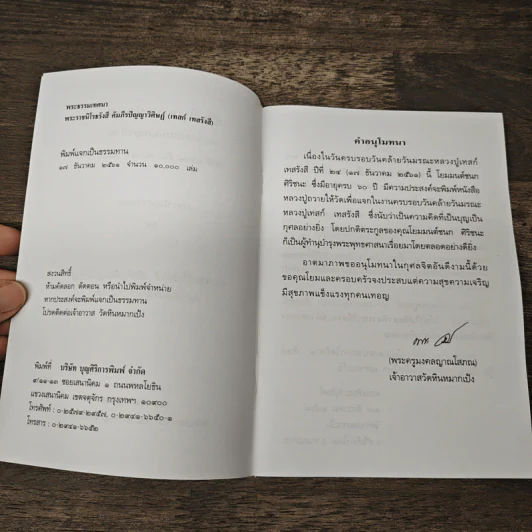 พระธรรมเทศนา
พระราชนิโรธรังสี คัมภีรปัญญาวิศิษฏ์ (เทสก์ เทสรังสี)
พิมพ์แจกเป็นธรรมทาน
๑๗ ธันวาคม ๒๕๖๑ จำนวน ๑๐,๐๐๐ เล่ม
สงวนสิทธิ์
ห้ามคัดลอก ตัดตอน หรือนำไปพิมพ์จำหน่าย
หากประสงค์จะพิมพ์แจกเป็นธรรมทาน
โปรดติดต่อเจ้าอาวาส วัดหินหมากเป้ง
พิมพ์ที่ บริษัท บุญศิริการพิมพ์ จำกัด
๙/๑๑-๑๓ ซอยเสนานิคม ๑ ถนนพหลโยธิน
แขวงเสนานิคม เขตจตุจักร กรุงเทพฯ ๑๐๙๐๐
โทรศัพท์ : ๐-๒๕๗๙-๒๙๕๗, ๐-๒๙๔๑-๖๖๕๐-๑
โทรสาร : ๐-๒๙๔๑-๖๖๕๒
คำอนุโมทนา
เนื่องในวันครบรอบวันคล้ายวันมรณะหลวงปู่เทสก์
เทสรังสี ปีที่ ๒๔ (๑๗ ธันวาคม ๒๕๖๑) นี้ โยมมนต์ชนก
ศิริชนะ ซึ่งมีอายุครบ ๖๐ ปี มีความประสงค์จะพิมพ์หนังสือ
หลวงปู่ถวายให้วัดเพื่อแจกในงานครบรอบวันคล้ายวันมรณะ
หลวงปู่เทสก์ เทสรังสี ซึ่งนับว่าเป็นความคิดที่เป็นบุญเป็น
กุศลอย่างยิ่ง โดยปกติตระกูลของคุณโยมมนต์ชนก ศิริชนะ
ก็เป็นผู้ทำนุบำรุงพระพุทธศาสนาเรื่อยมาโดยตลอดอย่างดียิ่ง
อาตมาภาพขออนุโมทนาในกุศลจิตอันดีงามนี้ด้วย
ขอคุณโยมและครอบครัวจงประสบแต่ความสุขความเจริญ
มีสุขภาพแข็งแรงทุกคนเทอญ
(พระครูมงคลญาณโสภณ)
เจ้าอาวาสวัดหินหมากเป้ง